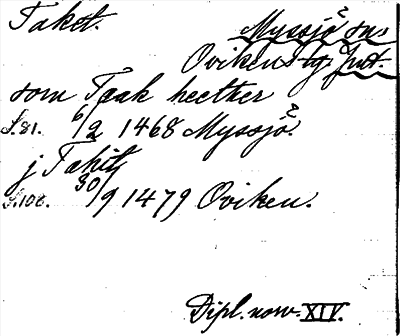 Taket. Myssjö sn,
Ovikens tg. Jmt.
som Taak heether
S. 81. 6/2 1468 Myssjö.
j Takit
S. 108. 30/9 1479 Oviken.
Dipl. norv. XIV.